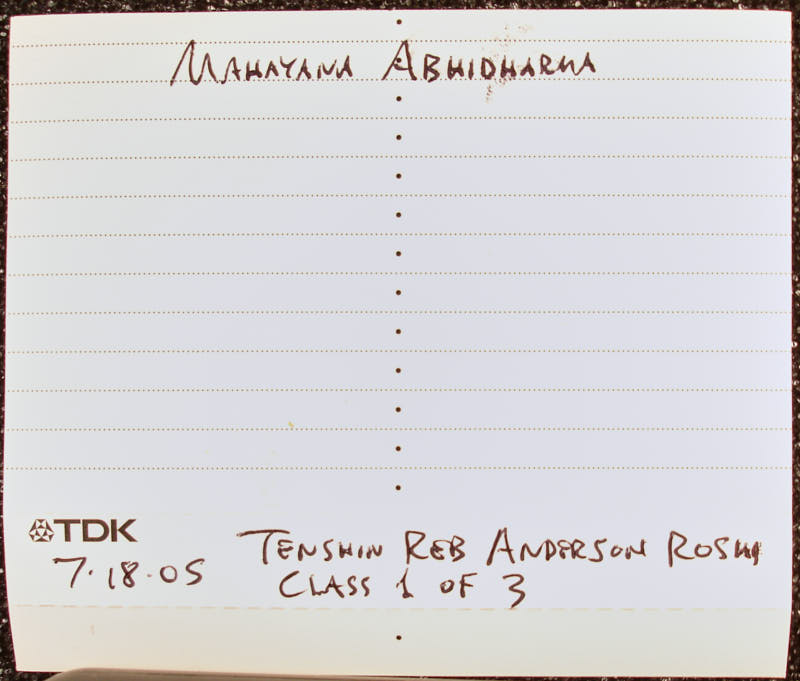 MAHAYANA ABHIDHARMA
TDK
7·18·05
TENSHIN REB ANDERSON ROSHI
CLASS 1 OF 3